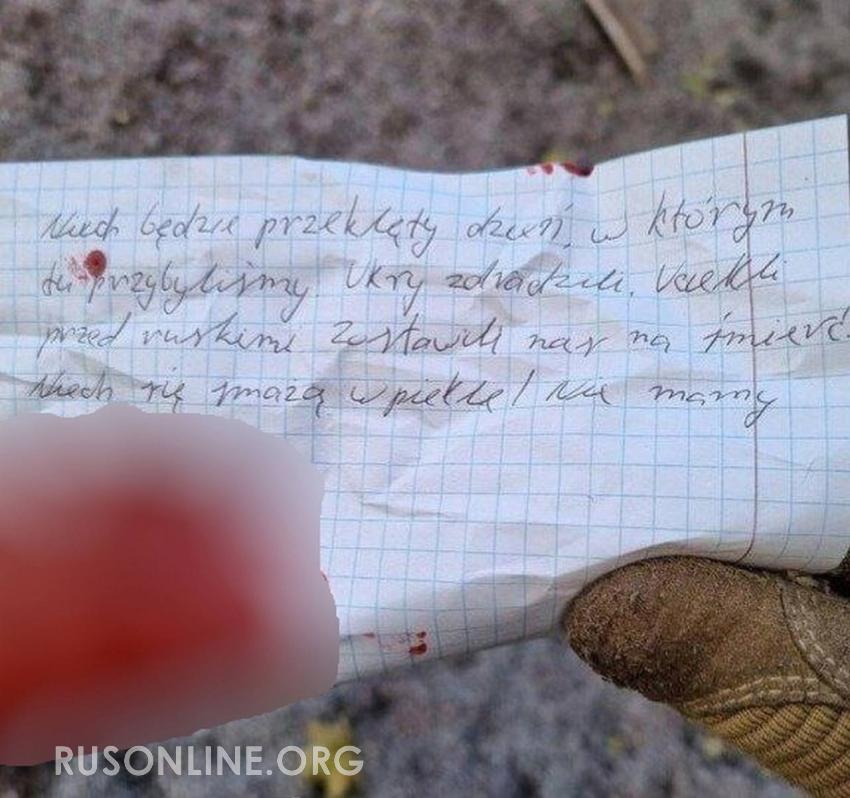 Niech będzie przeklęty dzień, w którym
tu przybyliśmy. Ukry zdradzili. Uciekli
przed ruskimi zostawili nas na śmierć.
Niech się smażą w piekle! Nie mamy
RUSONLINE.ORG